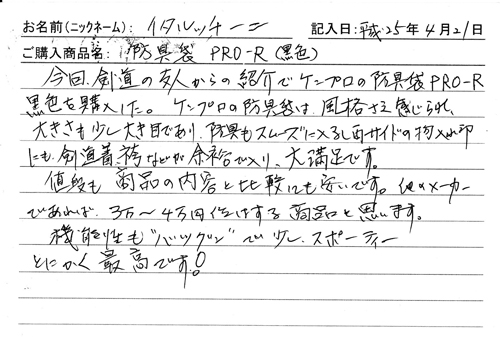 お名前(ニックネーム): イタルッチーニ 記入日:平成25年4月21日
ご購入商品名: 防具袋 PRO-R (黒色)
今回、剣道の友人からの紹介でケンプロの防具袋PRO-R
黒色を購入した。ケンプロの防具袋は、風格さえ感じられ、
大きさも少し大き目であり、防具もスムーズに入るし両サイドの物入れ
にも、剣道着、袴などが余裕で入り、大満足です。
値段も商品の内容と比較しても安いです。他のメーカー
であれば、3万〜4万円位はする商品と思います。
機能性も"バツグン"で少し、スポーティー
とにかく最高です!